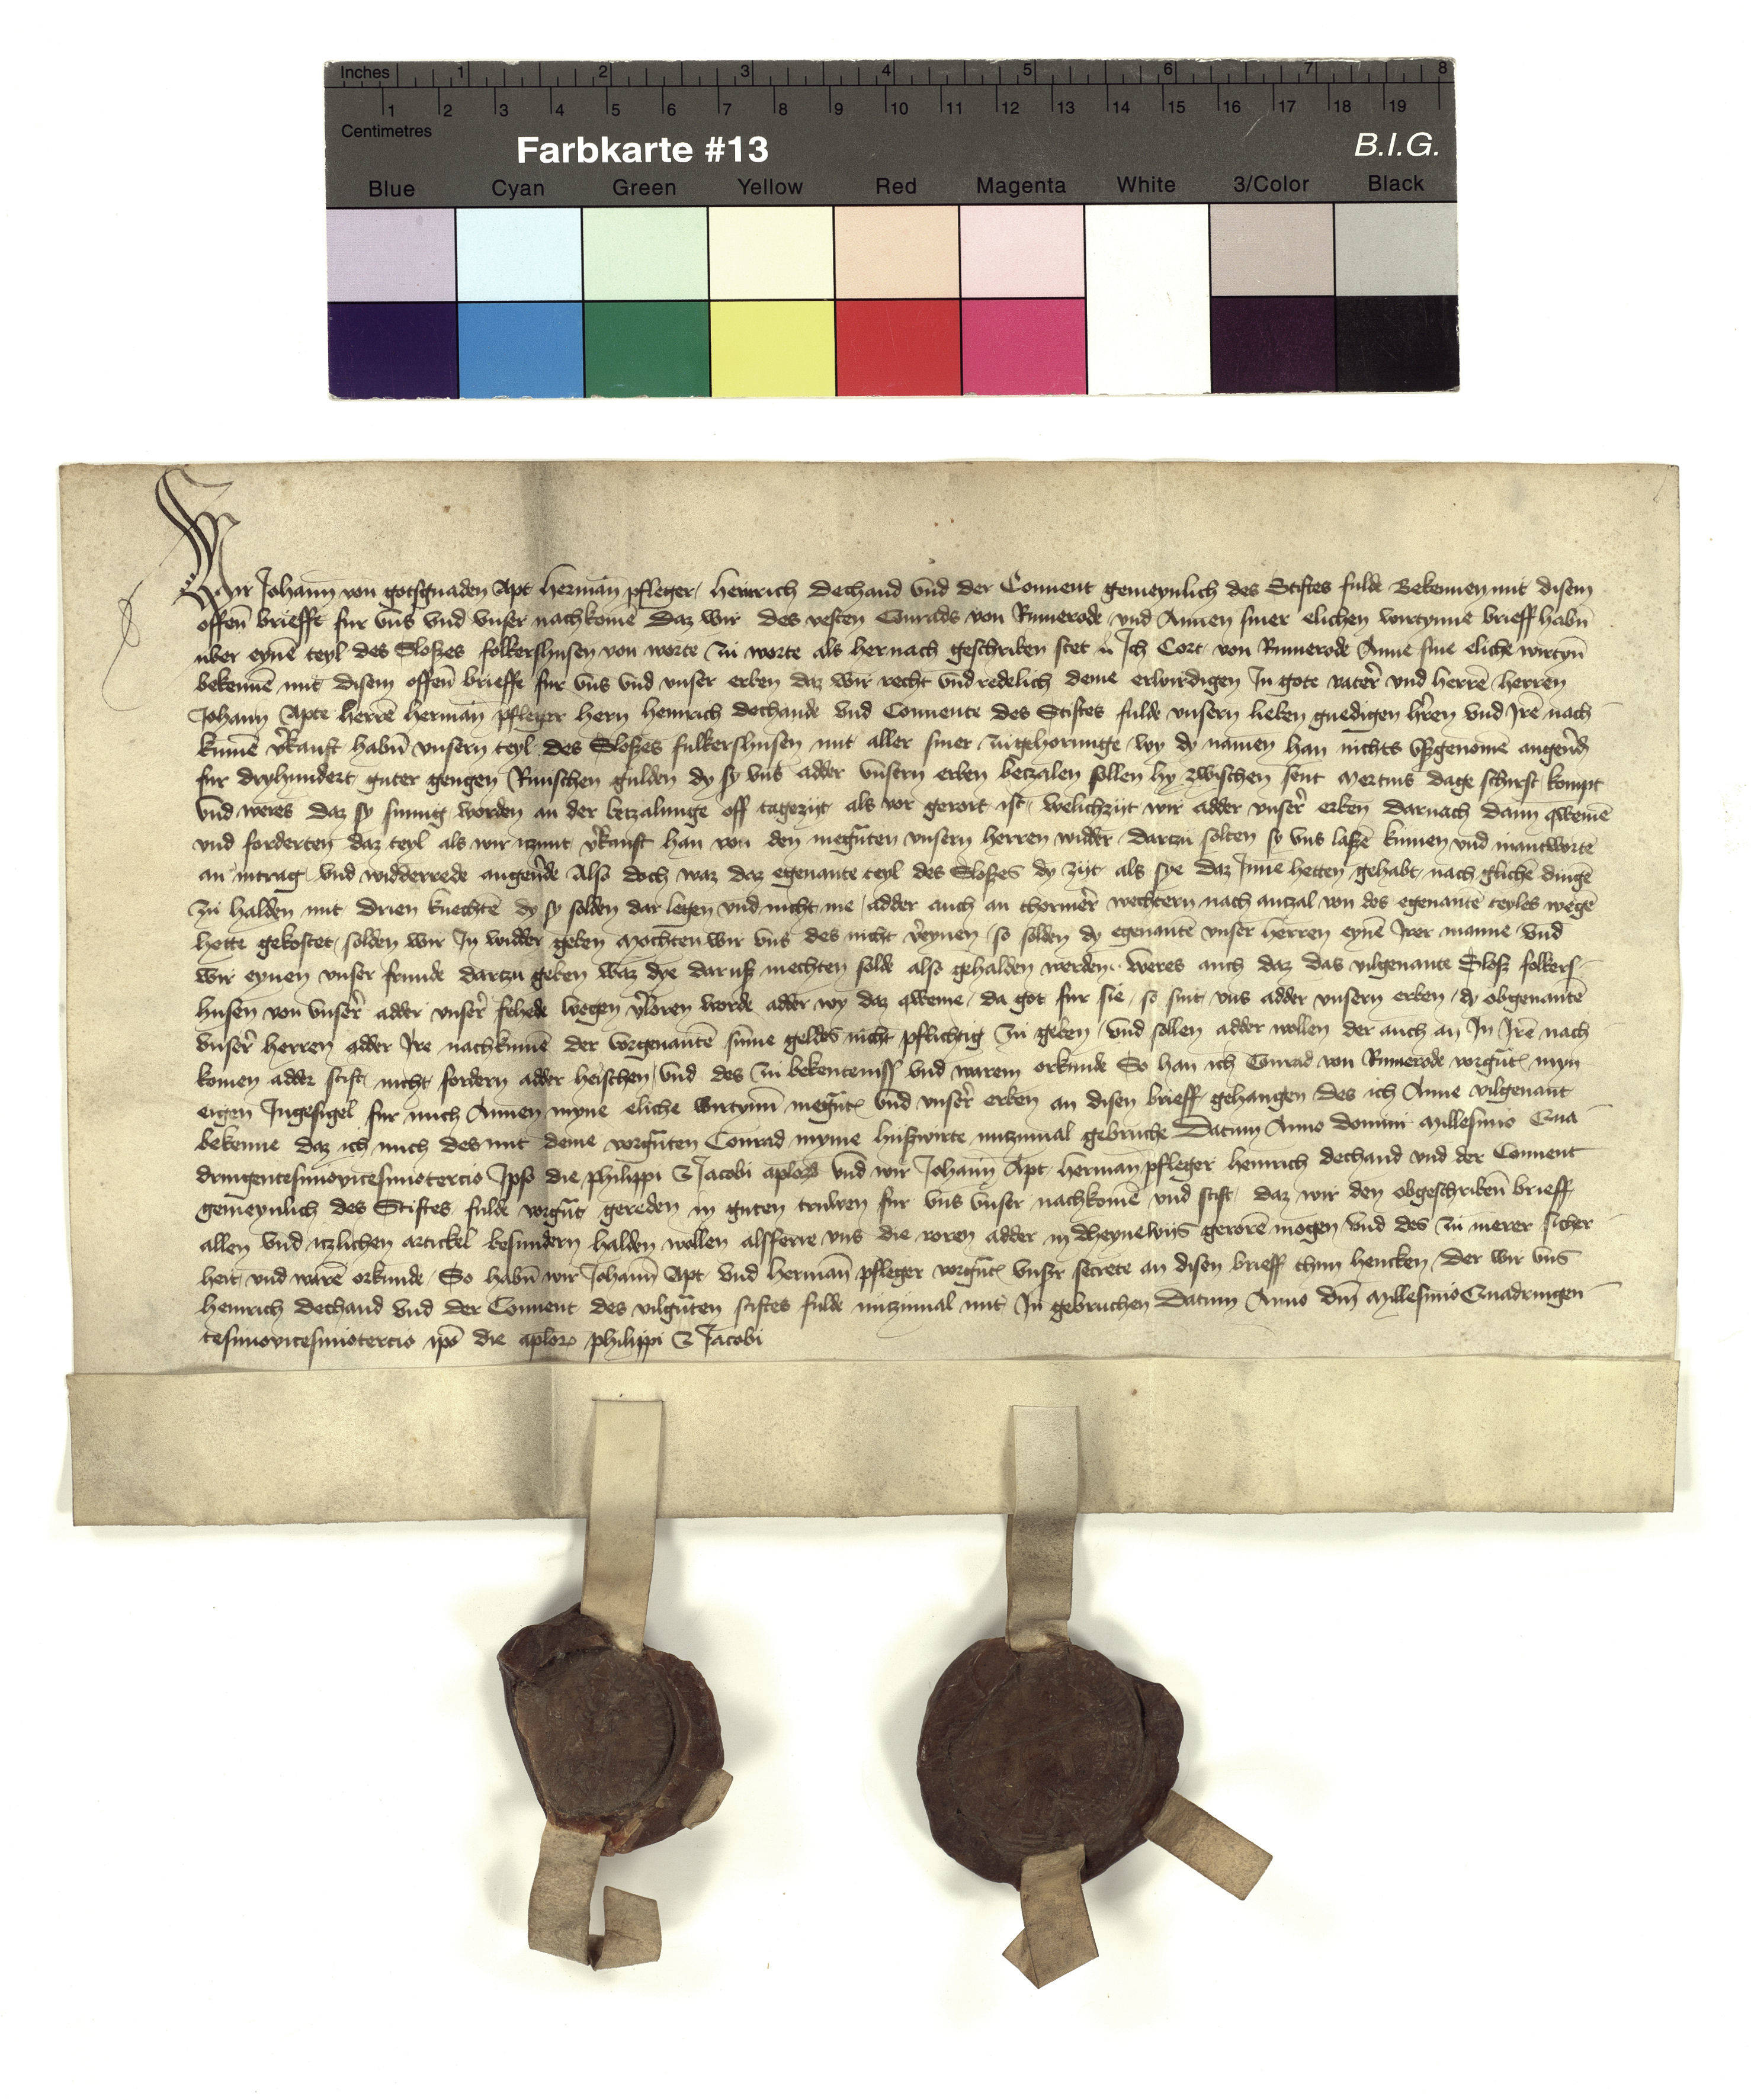 Inches 1 2 3 4 5 6 7 8
1 2 3 4 5 6 7 8 9 10 11 12 13 14 15 16 17 18 19
Centimetres
Farbkarte #13 B.I.G.
Blue Cyan Green Yellow Red Magenta White 3/Color Black
Wir Johann von gotsgnaden Apt herman pfleger heinrich dechand vnd der Conuent gemeynlich des Stiftes fulde Bekennen mit disem
offen briefft fur vns vnd vnser nachkome Daz wir des vesten Conrads von Rumerode vnd Annen siner elichen wirtynne brieff habn
uber eyne teyl des Sloßes folkershusen von worte zu worte als hernach geschriben stet Ich Cort von Rumerode Anne sine eliche wirtyn
bekenne mit disem offen brieffe fur vns vnd vnser erben daz wir recht vnd redelich deme erwirdigen In gote vater vnd herre herren
Johann Apte herre herman pfleger hern heinrich dechande vnd Conuente des Stiftes fulde vnsern lieben gnedigen hren vnd Ire nach
kume vkauft habn vnsern teyl des Sloßes fulkershusen mit aller siner zugehorunge wy dy namen han nichts vßgenome angerd
fur dryhundert guter gengen Rinschen gulden dy sy vns adder vnsern erben betzalen sollen hy zwischen sent mertins dage schirst kompt
vnd weres daz sy sumig worden an der betzalunge off tagezijt als vor gerort ist welichzijt wir adder vnser erben darnach dann qweme
vnd forderten daz teyl als wir itzunt vkauft han von den megten vnsern herren widder dartzu solten sy vns laße kumen vnd inantworte
an intrag vnd widderrede angerde Also doch waz daz egenante teyl des Sloßes dy zijt als sye daz Inne hetten gehabt nach gliche dinge
zu halden mit drien knechte dy sy solden dar legen vnd nicht me adder auch an thormer wechtern nach antzal von des egenante teyles wege
hette gekostet solden wir In widder geben mochten wir vns des nicht veynen so solden dy egenante vnser herren eyne Irer manne vnd
wir eynen vnser frunde dartzu geben waz dye daruß mechten solde also gehalden werden weres auch daz das vilgenante Sloß folkers
husen von vnser adder vnser fehede wegen vloren worde adder wy daz qweme da got fur sie so sint vns adder vnsern erben dy obgenante
vnser herren adder Ire nachkume der vorgenante sume geldes nicht pflichtig zu geben vnd sollen adder wollen der auch an In Ire nach
komen adder stift nicht fordern adder heischen vnd des zu bekenteniss vnd warem orkunde So han ich Conrad von Rumerode vorgut myn
eigen Ingesigel fur mich Annen myne eliche wirtynn megut vnd vnser erben an disen brieff gehangen des ich Anne vilgenant
bekenne daz ich mich des mit deme vorguten Conrad myme hußwirte mitzumal gebruche Datum Anno domini Millesimo Qua
dringentesimovicesimotercio Ipso die philippi & Jacobi aplor vnd wir Johann Apt herman pfleger heinrich dechand vnd der Conuent
gemeynlich des Stiftes fulde vorgut gereden in guten truwen fur vns vnser nachkome vnd stift daz wir den obgeschriben brieff
allen vnd itzlichen artickel besundern halden wollen alsferre vns die roren adder in dheynewijs geroren mogen vnd des zu merer sicher
heit vnd ware orkunde So habn wir Johann Apt vnd herman pfleger vorgut vnser secrete an disen brieff thun hencken der wir vns
heinrich dechand vnd der Conuent des vilguten stiftes fulde mitzumal mit In gebruchen Datum Anno dm Millesimo Quadringen
tesimovicesimotercio ipo die aplor philippi & Jacobi